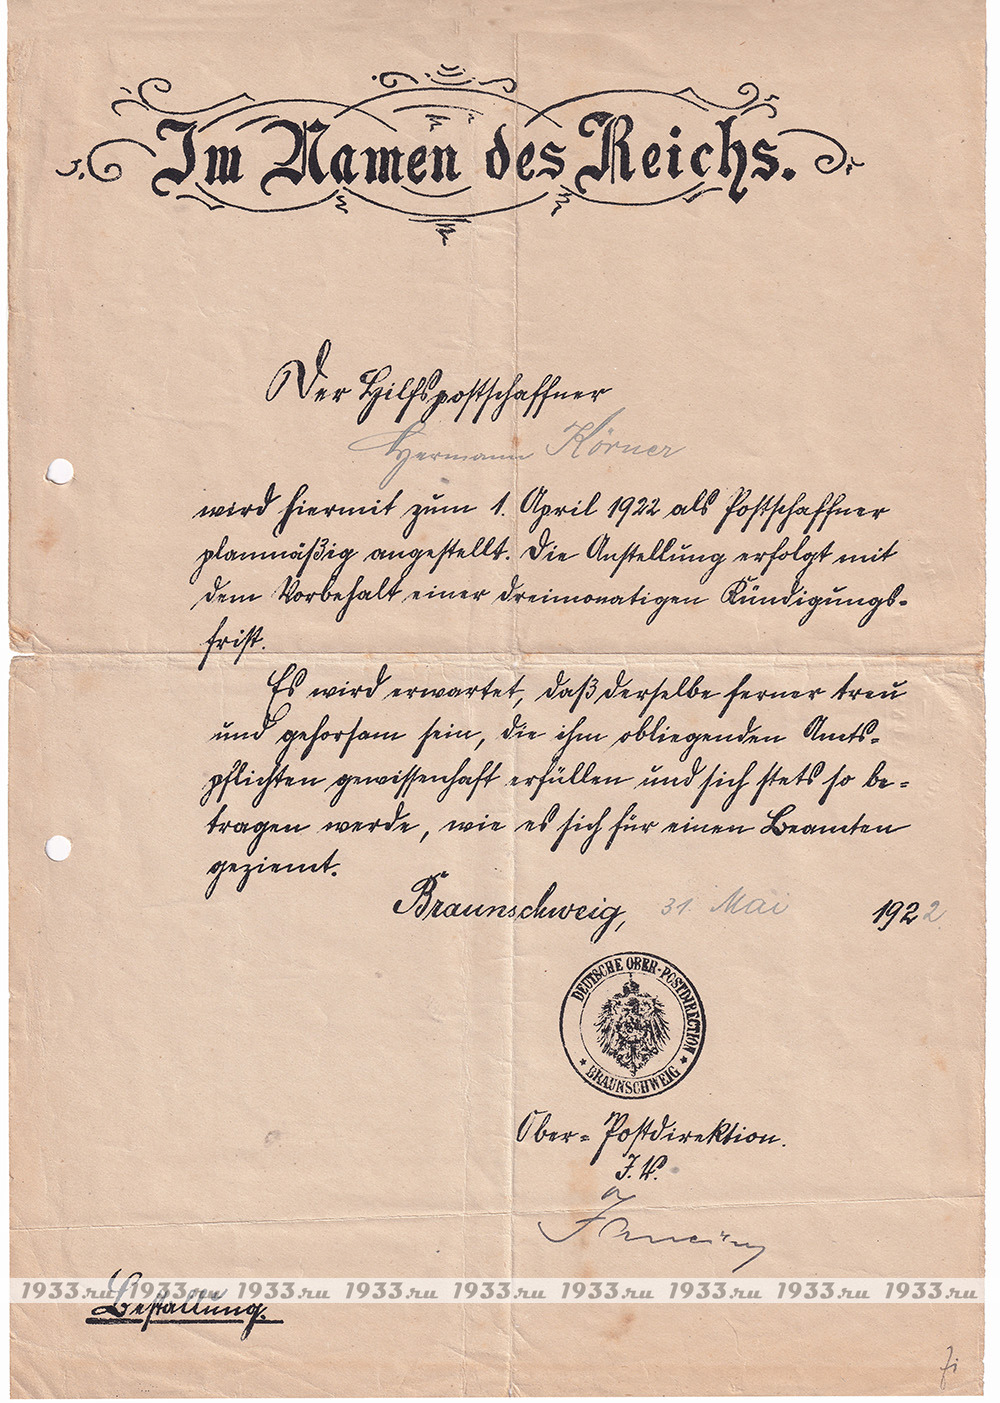 Im Namen des Reichs.
Der Hilfspostschaffner
Hermann Körner
wird hiermit zum 1. April 1922 als Postschaffner
planmäßig angestellt. Die Anstellung erfolgt mit
dem Vorbehalt einer dreimonatigen Kündigungs-
frist.
Es wird erwartet, daß derselbe ferner treu
und gehorsam sein, die ihm obliegenden Amts-
pflichten gewissenhaft erfüllen und sich stets so be-
tragen werde, wie es sich für einen Beamten
geziemt.
Braunschweig, 31. Mai 1922.
DEUTSCHE OBER-POSTDIRECTION
* BRAUNSCHWEIG *
Ober-Postdirektion.
I. V.
1933.ru 1933.ru 1933.ru 1933.ru 1933.ru 1933.ru 1933.ru 1933.ru 1933.ru
Bestallung.